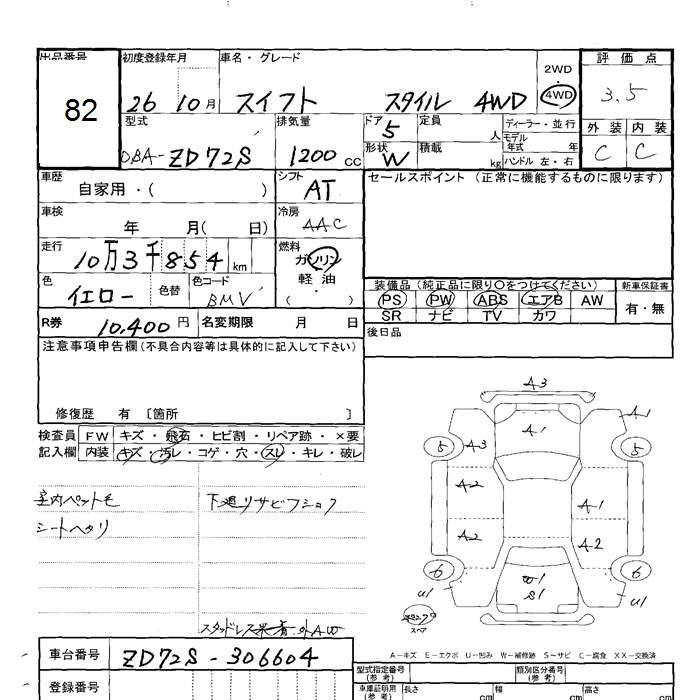 出品番号 初度登録年月 車名・グレード 2WD 評価点
82 26 10月 スイフト スタイル 4WD 4WD 3.5
型式 排気量 ドア 5 定員 人 ディーラー・並行 外装 内装
DBA-ZD72S 1200cc 形状 W 積載 kg モデル年式 年 ハンドル 左・右 C C
車歴 自家用・( ) シフト AT セールスポイント (正常に機能するものに限ります)
車検 年 月( 日) 冷房 AAC
走行 10万3千854km 燃料 ガソリン・軽油・( )
色 イエロー 色替 色コード BMV
装備品(純正品に限り〇をつけてください) 新車保証書
PS PW ABS エアB AW 有・無
SR ナビ TV カワ
R券 10,400円 名変期限 月 日 後日品
注意事項申告欄(不具合内容等は具体的に記入して下さい)
修復歴 有 〔箇所 〕
検査員 FW キズ・飛石・ヒビ割・リペア跡・×要
記入欄 内装 キズ・汚レ・コゲ・穴・スレ・キレ・破レ
室内ペット毛 下廻りサビフショク
シートヘタリ
A3
A1 A-1
5 A3 5
A2 A-1
A2 A-2
6 W1 6
U1 S1 U1
スペア
A-キズ E-エクボ U-凹み W-補修跡 S-サビ C-腐食 XX-交換済
車台番号 ZD72S-306604 型式指定番号(参考) 類別区分番号(参考)
登録番号 車庫証明用(参考) 長さ cm 幅 cm 高さ cm